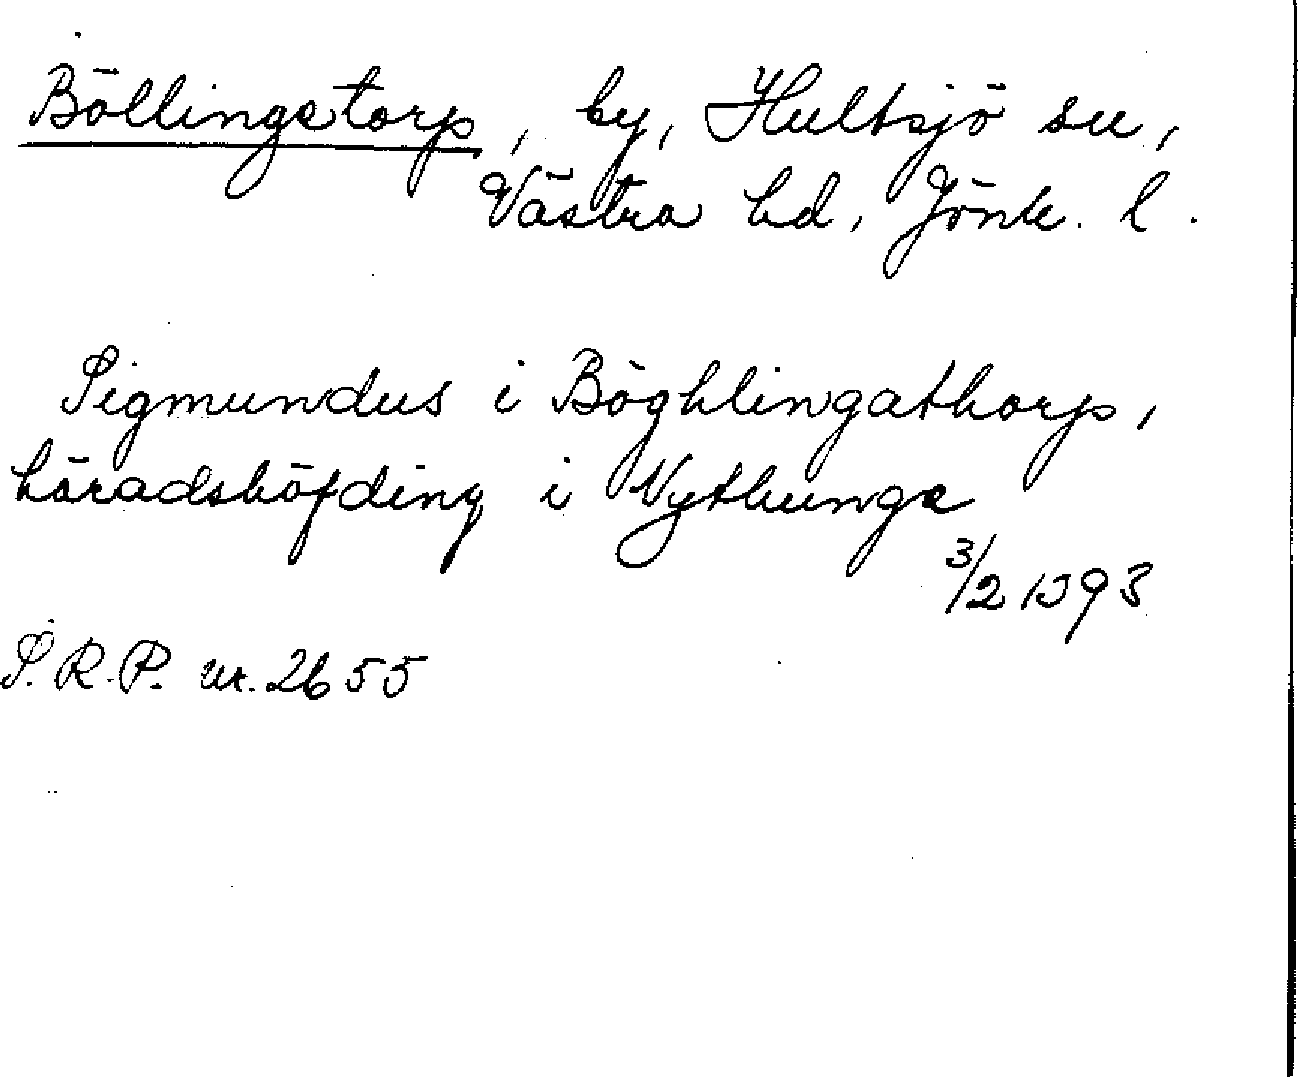 Böllingetorp, by, Hultsjö sn,
Västra hd, Jönk. l.
Sigmundus i Böghlingathorp,
häradshöfding i Nythunge
3/2 1393
S.R.P. nr. 2655